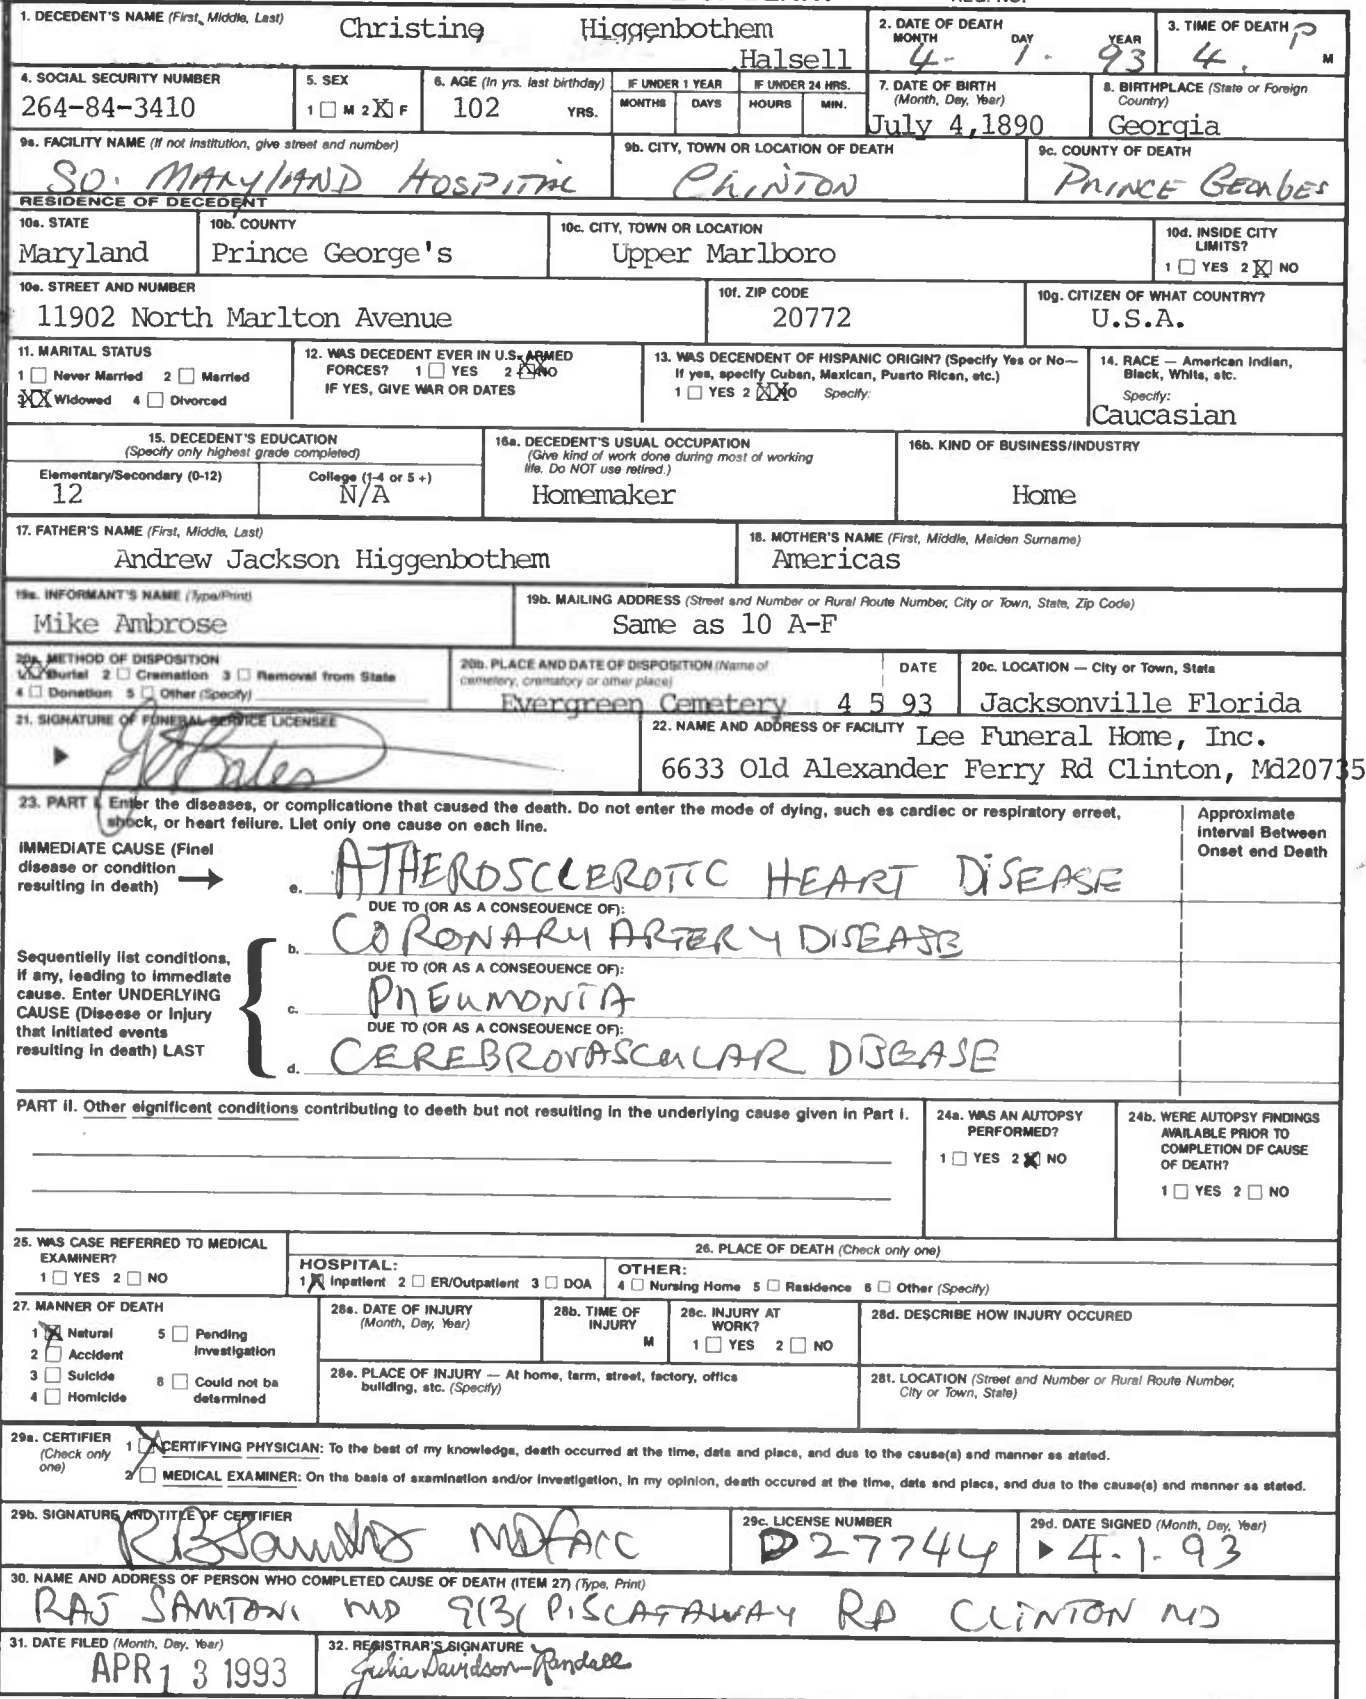 1. DECEDENT'S NAME (First, Middle, Last) Christine Higgenbothem Halsell
2. DATE OF DEATH MONTH DAY YEAR 4- 1. 93
3. TIME OF DEATH 4. P M
4. SOCIAL SECURITY NUMBER 264-84-3410
5. SEX 1 ☐ M 2 ☒ F
6. AGE (In yrs. last birthday) 102 YRS.
IF UNDER 1 YEAR MONTHS DAYS
IF UNDER 24 HRS. HOURS MIN.
7. DATE OF BIRTH (Month, Day, Year) July 4,1890
8. BIRTHPLACE (State or Foreign Country) Georgia
9a. FACILITY NAME (If not institution, give street and number) SO. MARYLAND HOSPITAL
9b. CITY, TOWN OR LOCATION OF DEATH CLINTON
9c. COUNTY OF DEATH PRINCE GEORGES
RESIDENCE OF DECEDENT
10a. STATE Maryland
10b. COUNTY Prince George's
10c. CITY, TOWN OR LOCATION Upper Marlboro
10d. INSIDE CITY LIMITS? 1 ☐ YES 2 ☒ NO
10e. STREET AND NUMBER 11902 North Marlton Avenue
10f. ZIP CODE 20772
10g. CITIZEN OF WHAT COUNTRY? U.S.A.
11. MARITAL STATUS
1 ☐ Never Married 2 ☐ Married
3 ☒ Widowed 4 ☐ Divorced
12. WAS DECEDENT EVER IN U.S. ARMED FORCES? 1 ☐ YES 2 ☒ NO
IF YES, GIVE WAR OR DATES
13. WAS DECENDENT OF HISPANIC ORIGIN? (Specify Yes or No— If yes, specify Cuban, Mexican, Puerto Rican, etc.)
1 ☐ YES 2 ☒ NO Specify:
14. RACE — American Indian, Black, White, etc. Specify: Caucasian
15. DECEDENT'S EDUCATION (Specify only highest grade completed)
Elementary/Secondary (0-12) 12
College (1-4 or 5+) N/A
16a. DECEDENT'S USUAL OCCUPATION (Give kind of work done during most of working life. Do NOT use retired.) Homemaker
16b. KIND OF BUSINESS/INDUSTRY Home
17. FATHER'S NAME (First, Middle, Last) Andrew Jackson Higgenbothem
18. MOTHER'S NAME (First, Middle, Maiden Surname) Americas
19a. INFORMANT'S NAME (Type/Print) Mike Ambrose
19b. MAILING ADDRESS (Street and Number or Rural Route Number, City or Town, State, Zip Code) Same as 10 A-F
20a. METHOD OF DISPOSITION
☒ Burial 2 ☐ Cremation 3 ☐ Removal from State
4 ☐ Donation 5 ☐ Other (Specify)
20b. PLACE AND DATE OF DISPOSITION (Name of cemetery, crematory or other place) DATE
Evergreen Cemetery 4 5 93
20c. LOCATION — City or Town, State Jacksonville Florida
21. SIGNATURE OF FUNERAL SERVICE LICENSEE
Bates
22. NAME AND ADDRESS OF FACILITY Lee Funeral Home, Inc.
6633 Old Alexander Ferry Rd Clinton, Md20735
23. PART I. Enter the diseases, or complications that caused the death. Do not enter the mode of dying, such as cardiac or respiratory arrest, shock, or heart failure. List only one cause on each line.
Approximate Interval Between Onset and Death
IMMEDIATE CAUSE (Final disease or condition resulting in death)
a. ATHEROSCLEROTIC HEART DISEASE
DUE TO (OR AS A CONSEQUENCE OF):
b. CORONARY ARTERY DISEASE
DUE TO (OR AS A CONSEQUENCE OF):
Sequentially list conditions, if any, leading to immediate cause. Enter UNDERLYING CAUSE (Disease or Injury that initiated events resulting in death) LAST
c. PNEUMONIA
DUE TO (OR AS A CONSEQUENCE OF):
d. CEREBROVASCULAR DISEASE
PART II. Other significant conditions contributing to death but not resulting in the underlying cause given in Part I.
24a. WAS AN AUTOPSY PERFORMED? 1 ☐ YES 2 ☒ NO
24b. WERE AUTOPSY FINDINGS AVAILABLE PRIOR TO COMPLETION OF CAUSE OF DEATH? 1 ☐ YES 2 ☐ NO
25. WAS CASE REFERRED TO MEDICAL EXAMINER? 1 ☐ YES 2 ☐ NO
26. PLACE OF DEATH (Check only one)
HOSPITAL: 1 ☒ Inpatient 2 ☐ ER/Outpatient 3 ☐ DOA
OTHER: 4 ☐ Nursing Home 5 ☐ Residence 6 ☐ Other (Specify)
27. MANNER OF DEATH
1 ☒ Natural 5 ☐ Pending Investigation
2 ☐ Accident
3 ☐ Suicide 8 ☐ Could not be determined
4 ☐ Homicide
28a. DATE OF INJURY (Month, Day, Year)
28b. TIME OF INJURY M
28c. INJURY AT WORK? 1 ☐ YES 2 ☐ NO
28d. DESCRIBE HOW INJURY OCCURED
28e. PLACE OF INJURY — At home, farm, street, factory, office building, etc. (Specify)
28f. LOCATION (Street and Number or Rural Route Number, City or Town, State)
29a. CERTIFIER (Check only one)
1 ☒ CERTIFYING PHYSICIAN: To the best of my knowledge, death occurred at the time, date and place, and due to the cause(s) and manner as stated.
2 ☐ MEDICAL EXAMINER: On the basis of examination and/or investigation, in my opinion, death occured at the time, date and place, and due to the cause(s) and manner as stated.
29b. SIGNATURE AND TITLE OF CERTIFIER MD FACC
29c. LICENSE NUMBER D27744
29d. DATE SIGNED (Month, Day, Year) 4.1.93
30. NAME AND ADDRESS OF PERSON WHO COMPLETED CAUSE OF DEATH (ITEM 27) (Type, Print)
RAJ SAMTANI MD 9131 PISCATAWAY RD CLINTON MD
31. DATE FILED (Month, Day, Year) APR 13 1993
32. REGISTRAR'S SIGNATURE Julia Davidson-Randall